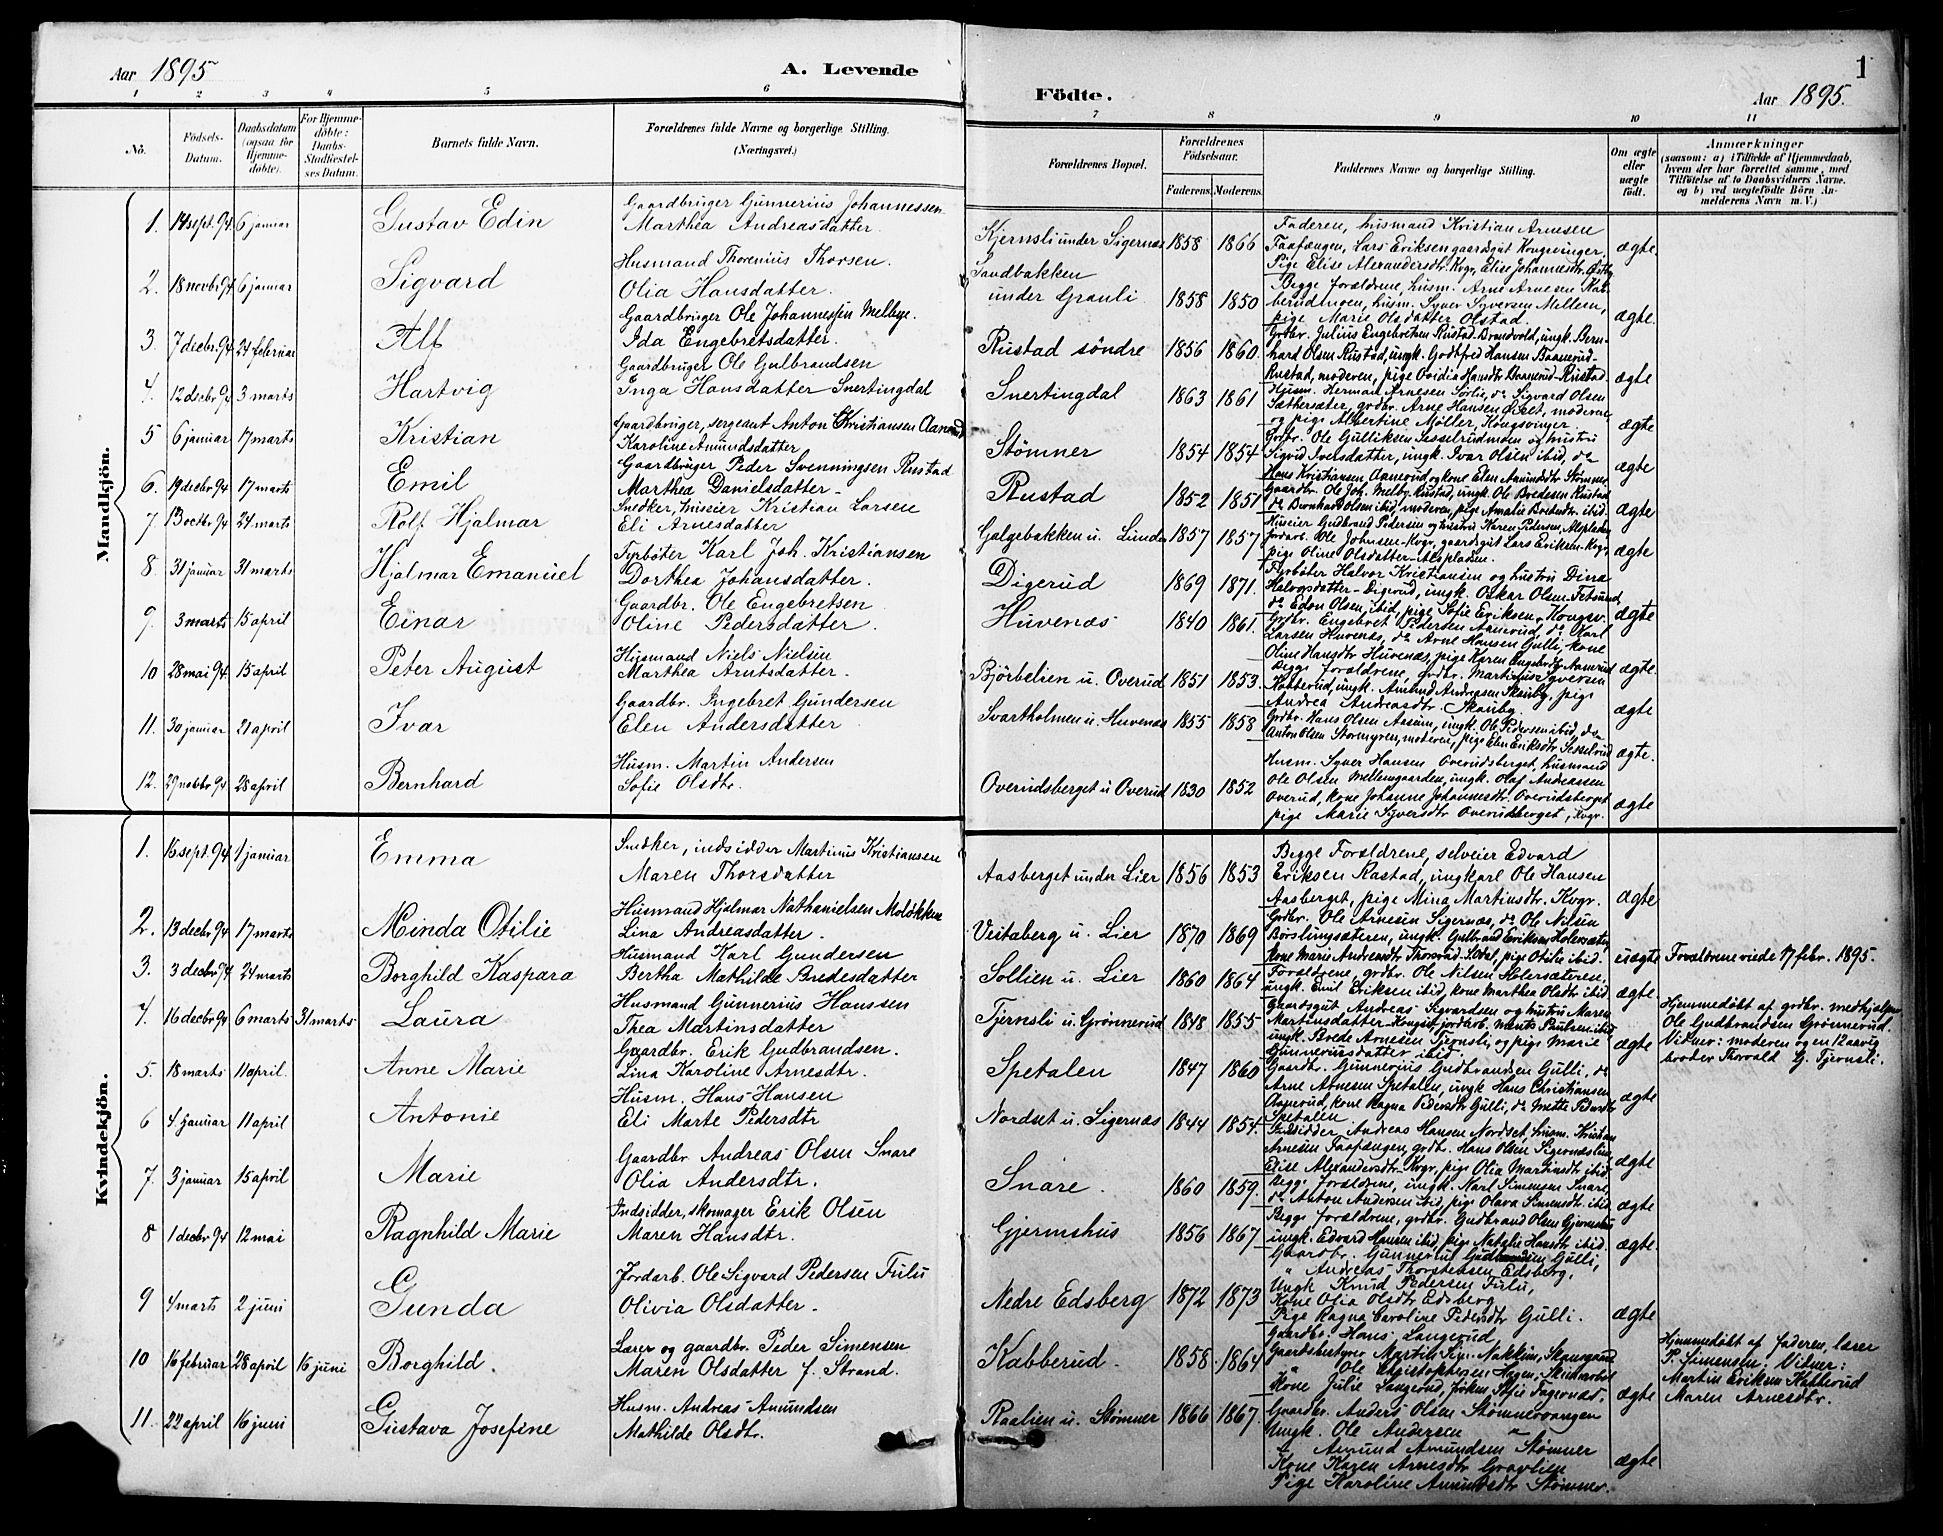 Aar 1895
A. Levende
1 2 3 4 5 6
No.
Födsels-Datum.
Daabsdatum (ogsaa for Hjemme-döbte).
For Hjemme-döbte: Daabs-Stadfæstel-ses Datum.
Barnets fulde Navn.
Forældrenes fulde Navne og borgerlige Stilling. (Næringsvei.)
Mandkjön.
1. 14 sept. 94 6 januar Gustav Edin
Gaardbruger Gunnerius Johannessen
Marthea Andreasdatter.
2. 18 novbr. 94 6 januar Sigvard
Husmand Thorenius Thorsen.
Olia Hansdatter.
3. 7 decbr. 94 24 februar Alf
Gaardbruger Ole Johannessen Melbye.
Ida Engebretsdatter.
4. 12 decbr 94 3 marts Hartvig
Gaardbruger Ole Gulbrandsen
Inga Hansdatter Snertingdal
5 6 januar 17 marts Kristian
Gaardbruger, sergeant Anton Christiansen Aanerud
Karoline Amundsdatter
6. 19 decbr 94 17 marts Emil
Gaardbruger Peder Svenningsen Rustad
Marthea Danielsdatter
7. 13 octbr 94 24 marts Rolf Hjalmar
Snedker, huseier Kristian Larsen
Eli Arnesdatter
8. 31 januar 31 marts Hjalmar Emanuel
Tyrbøter Karl Joh. Kristiansen
Dorthea Johansdatter.
9. 3 marts 15 april Einar
Gaardbr. Ole Engebretsen
Oline Pedersdatter.
10 28 mai 94 15 april Peter August
Husmand Niels Nielsen
Marthea Arntsdatter.
11. 30 januar 21 april Ivar
Gaardbr. Ingebret Gundersen
Elen Andersdatter.
12. 29 novbr 94 28 april Bernhard
Husm. Martin Andersen
Sofie Olsdtr.
Kvindekjön.
1. 16 sept. 94 1 januar Emma
Snedker, indsidder Martinus Kristiansen
Maren Thorsdatter
2. 13 decbr. 94 17 marts Minda Otilie
Husmand Hjalmar Nathanielsen Moløkken
Lina Andreasdatter.
3. 3 decbr 94 24 marts Borghild Kaspara
Husmand Karl Gundersen
Bertha Mathilde Bredesdatter
4. 16 decbr 94 6 marts 31 marts Laura
Husmand Gunnerius Hanssen
Thea Martinsdatter
5. 18 marts 11 april. Anne Marie
Gaardbr. Erik Gudbrandsen.
Lina Karoline Arnesdtr.
6 4 januar 11 april Antonie
Husm. Hans Hansen
Eli Marte Pedersdtr
7. 3 januar 15 april Marie
Gaardbr Andreas Olsen Snare
Olia Andersdtr.
8 1 decbr 94 12 mai Ragnhild Marie
Indsidder, skomager Erik Olsen
Maren Hansdtr.
9 4 marts 2 juni Gunda
Jordarb. Ole Sigvard Pedersen Fulu
Olivia Olsdatter.
10 16 februar 28 april 16 juni Borghild.
Lærer og gaardbr. Peder Simensen
Maren Olsdatter f. Strand.
11. 22 april 16 juni Gustava Josefine
Husm. Andreas Amundsen
Mathilde Olsdtr.
1
Födte.
Aar 1895.
7 8 9 10 11
Forældrenes Bopæl.
Forældrenes Födselsaar.
Faderens. Moderens.
Faddernes Navne og borgerlige Stilling.
Om ægte eller uægte födt.
Anmærkninger
(saasom: a) i Tilfælde af Hjemmedaab, hvem der har forrettet samme, med Tilföielse af to Daabsvidners Navne. og b) ved uægtefödte Börn Anmelderens Navn m. V.)
Kjernsli under Sigernæs 1858 1866
Faderen, husmand Kristian Arnesen
Faafængen, Lars Eriksen gaardsgut Kongsvinger.
Pige Elise Alexandersdtr. Kvgr, Elise Johannesdtr.
ægte.
Sandbakken
under Granli 1858 1850
Begge forældrene, husm. Arne Arnesen Kabberudmoen, husm. Syver Syversen Mellem,
pige Marie Olsdatter Olstad.
ægte.
Rustad söndre 1856 1860.
Grbr. Julius Engebretsen Rustad-Brandvold, ungk. Bernhard Olsen Rustad, ungk. Godtfred Hansen Baanerud-
Rustad, moderen, pige Ovidia Hansdtr Baanerud-Rustad.
ægte
Snertingdal 1863 1861
Husm. Herman Arnesen Sørlie, do Sigvard Olsen
Sæthersæter, grdbr. Arne Hansen, moderen
og pige Albertine Møller, Kongsvinger.
ægte
Stömner 1854 1854
Grbr. Ole Gulliksen Sesselrudmoen og hustru
Sigrid Iversdatter, ungk. Ivar Olsen ibid, do
Hans Kristiansen, Aanerud og kone Elen Amundsdtr Stömner
ægte
Rustad 1852 1851
Gaardbr. Ole Joh. Melby Rustad, ungk. Ole Bredesen Rustad
do Bernhard Olsen ibid, moderen, pige Amalie Bredesdtr ibid.
ægte
Galgebakken u. Lunder 1857 1857
Huseier Gudbrand Pedersen og hustru Karen Pedersen,
jordarb. Ole Johnsen-Kvgr, gaardsgut Lars Eriksen-Kvgr,
pige Oline Olsdatter
ægte
Digerud 1869 1871.
Tyrbøter Halvor Kristiansen og hustru Dina
Halvorsdatter-Digerud, ungk. Oskar Olsen-Fetsund,
do Edon Olsen, ibid, pige Sofie Eriksen, Kongsv.
ægte
Huvenæs 1840 1861.
Grbr. Engebret Pedersen Aanerud, do Karl
Larsen Huvenæs, do Arne Hansen Gulli, kone
Oline Hansdtr Huvenæs, pige Karen Engebrdtr Aanerud
ægte.
Björbelien u. Overud 1851 1853.
Begge forældrene, grdbr. Martinus Syversen
Kabberud, ungk. Amund Andreasen Skauby, pige
Andrea Andreasdtr. Skauby.
ægte
Svartholmen u. Huvenæs 1855 1858
Grdbr. Hans Olsen Aasum, ungk. Ole Pedersen ibid, do
Anton Olsen Stormyren, moderen, pige Elen Eriksdtr Sesselrud
ægte.
Overudsberget u Overud 1830 1852
Husm. Syver Hansen Overudsberget, husmand
Ole Olsen Mellemgaarden, ungk. Olaf Andreassen
Overud, kone Johanne Johannesdtr. Overudsberget
pige Marie Syversdtr Overudsberget, Kvgr.
ægte
Aasberget under Lier 1856 1853
Begge Forældrene, selveier Edvard
Eriksen Rastad, ungkarl Ole Hansen
Aasberget, pige Mina Martinsdtr. Kvgr.
ægte
Vestaberg u. Lier 1870 1869
Grdbr. Ole Arnesen Sigernæs, do Ole Nilsen
Børslingsæteren, ungk. Gulbrand Eriksen Holersæter
kone Marie Andreasdtr Thorsrud, pige Otilie ibid.
uægte Forældrene viede 17 febr. 1895.
Sollien u. Lier 1860 1864
Forældrene, grdbr. Ole Nilsen Holersæteren,
ungk. Emil Eriksen ibid, kone Marthea Olsdtr ibid.
ægte
Tjernsli u. Grönnerud 1848 1855
Gaardsgut Andreas Sigvardsen og hustru Maren
Martinsdatter-Kongsv. jordarb. Ments Paulsen ibid
ungk. Brede Arnesen Tjernsli, og pige Marie
Gunneriusdatter ibid.
ægte
Hjemmedøbt af grdbr. medhjælper
Ole Gudbrandsen Grönnerud.
Vidner: moderen og en 12 aarig
broder Thorvald G. Tjernsli.
Spetalen 1847 1860
Gaardbr. Gunnerius Gudbrandsen Gulli, do
Arne Arnesen Spetalen, ungk Hans Christiansen
Aanerud, kone Ragna Pedersdtr Gulli, do Mette Pedersdtr
Spetalen
ægte
Nordset u. Sigernæs 1844 1854.
Indsidder, Andreas Hansen Nordset, husm. Kristian
Arnesen Faafængen, grdbr. Hans Olsen Sigernæslien
Elise Alexandersdtr-Kvgr, pige Olia Martinsdtr ibid.
ægte
Snare. 1860 1859.
Begge forældrene, ungk. Karl Simensen Snare,
do Anton Andersen ibid, pige Olava Simensdtr. ibid
ægte
Gjermshus 1856 1867
Begge forældrene, grdbr. Gudbrand Olsen Gjermshus
ungk. Edvard Hansen ibid, pige Natalie Hansdtr ibid.
ægte.
Nedre Edsberg 1872 1873
Gaardbr. Gunnerius Gudbrandsen Gulli,
" Andreas Thorstensen Edsberg,
Ungk Knud Pedersen Fulu,
Kone Olia Olsdtr Edsberg
Pige Ragna Caroline Pedersdtr Gulli.
ægte
Kabberud. 1858. 1864
Gaardbr. Hans Langerud
Gaardsbestyrer Martin Sim. Nakkim, Skansgaard
" Ole Christophersen Hagen,
Kone Julie Langerud, frøken Sofie Fagernæs.
ægte
Hjemmedöbt af Faderen, lærer
P. Simensen: Vidner:
Martin Eriksen Kabberud
Maren Arnesdtr.
Raalien u. Stømner 1866 1867.
Gaardbr. Anders Olsen Stømnervangen
Ungk. Ole Andersen "
" Amund Amundsen Stømner
Kone Karen Arnesdtr Gravlien
Pige Karoline Amundsdtr Stømner.
ægte